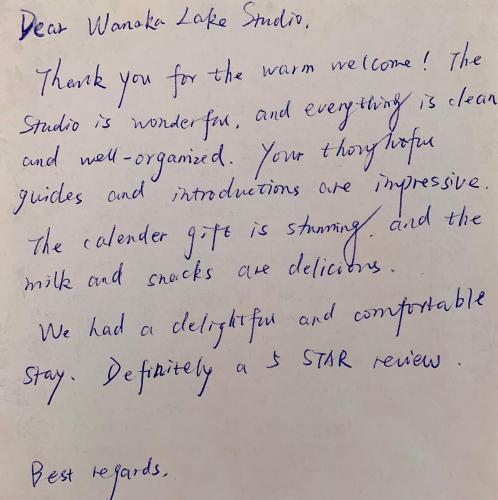 Dear Wanaka Lake Studio,
Thank you for the warm welcome! The
Studio is wonderful, and everything is clean
and well-organized. Your thoughtful
guides and introductions are impressive.
The calender gift is stunning, and the
milk and snacks are delicious.
We had a delightful and comfortable
stay. Definitely a 5 STAR review.
Best regards,